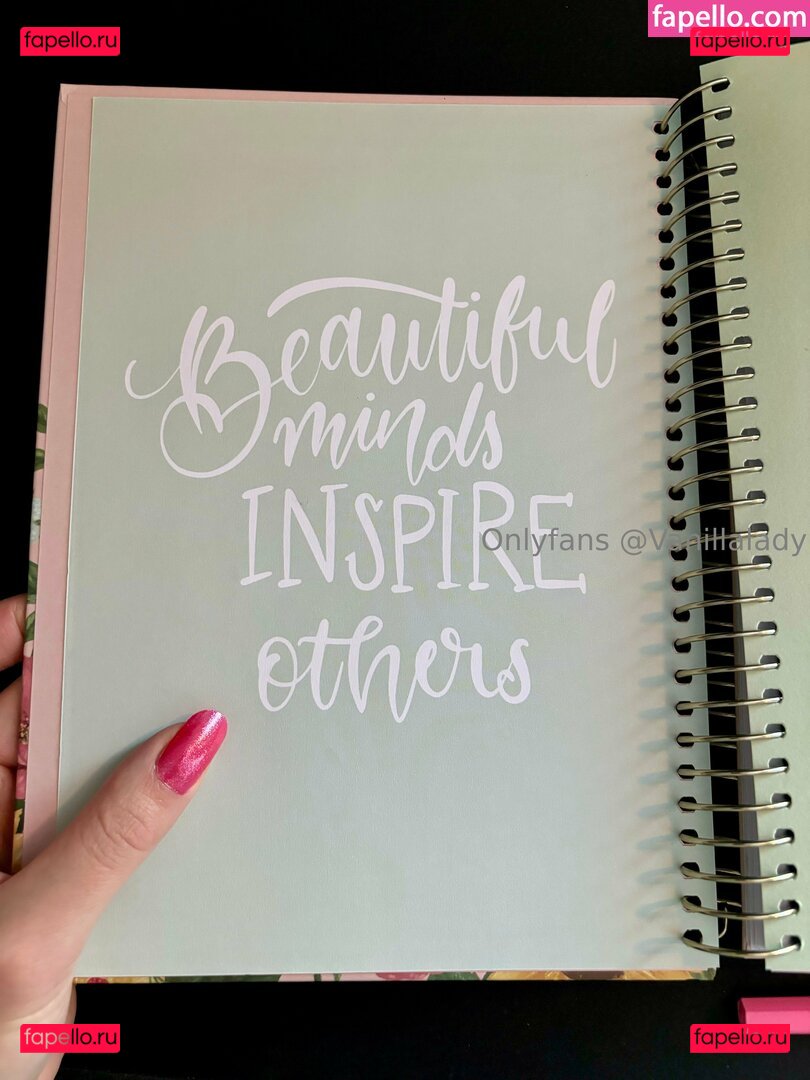 fapello.com
fapello.ru
fapello.ru
Beautiful
minds
INSPIRE
Onlyfans @Vanillalady
others
fapello.ru
fapello.ru